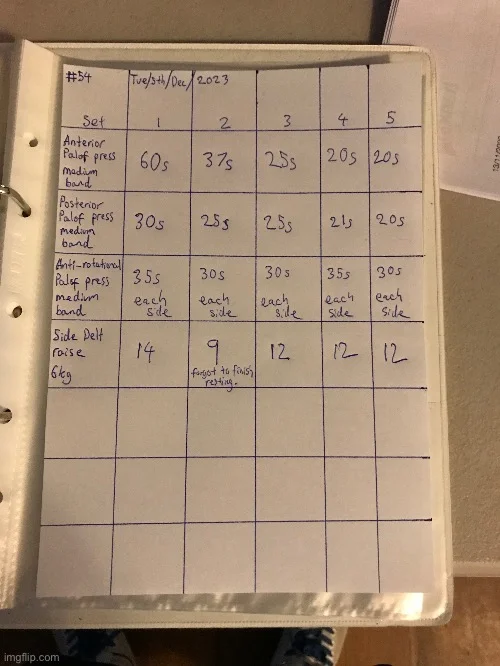 #54 Tue/5th/Dec/2023
Set 1 2 3 4 5
Anterior
Palof press
medium
band
60s 37s 25s 20s 20s
Posterior
Palof press
medium
band
30s 25s 25s 21s 20s
Anti-rotational
Palof press
medium
band
35s 30s 30s 35s 30s
each each each each each
side side side side side
Side Delt
raise
6kg
14 9 12 12 12
forgot to finish
resting.
imgflip.com